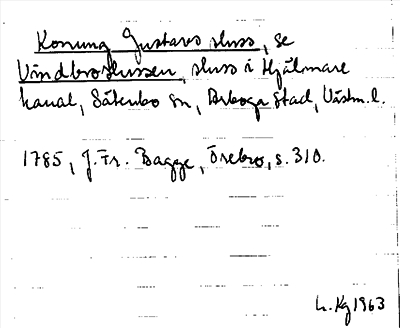 Konung Gustavs sluss, se
Vindbroslussen, sluss i Hjälmare
kanal, Säterbo sn, Arboga stad, Västm.l.
1785, J. Fr. Bagge, Örebro, s. 310.
L. Kg 1963